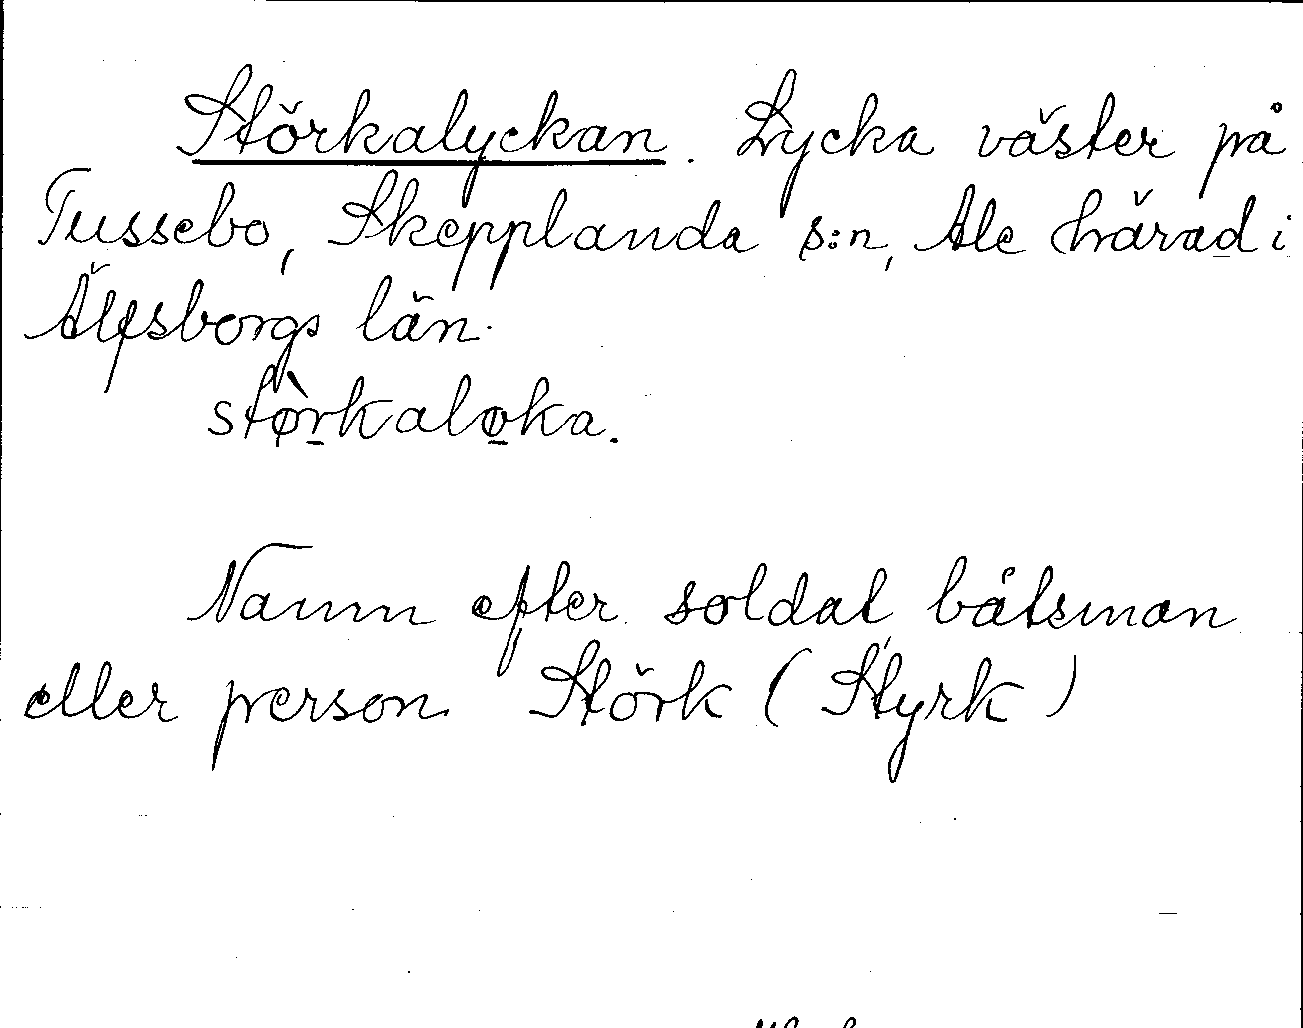 Störkalyckan. Lycka väster på
Tussebo, Skepplanda s:n, Ale härad i
Älfsborgs län.
stø̀rkaløka.
Namn efter soldat, båtsman
eller person Störk (Styrk)